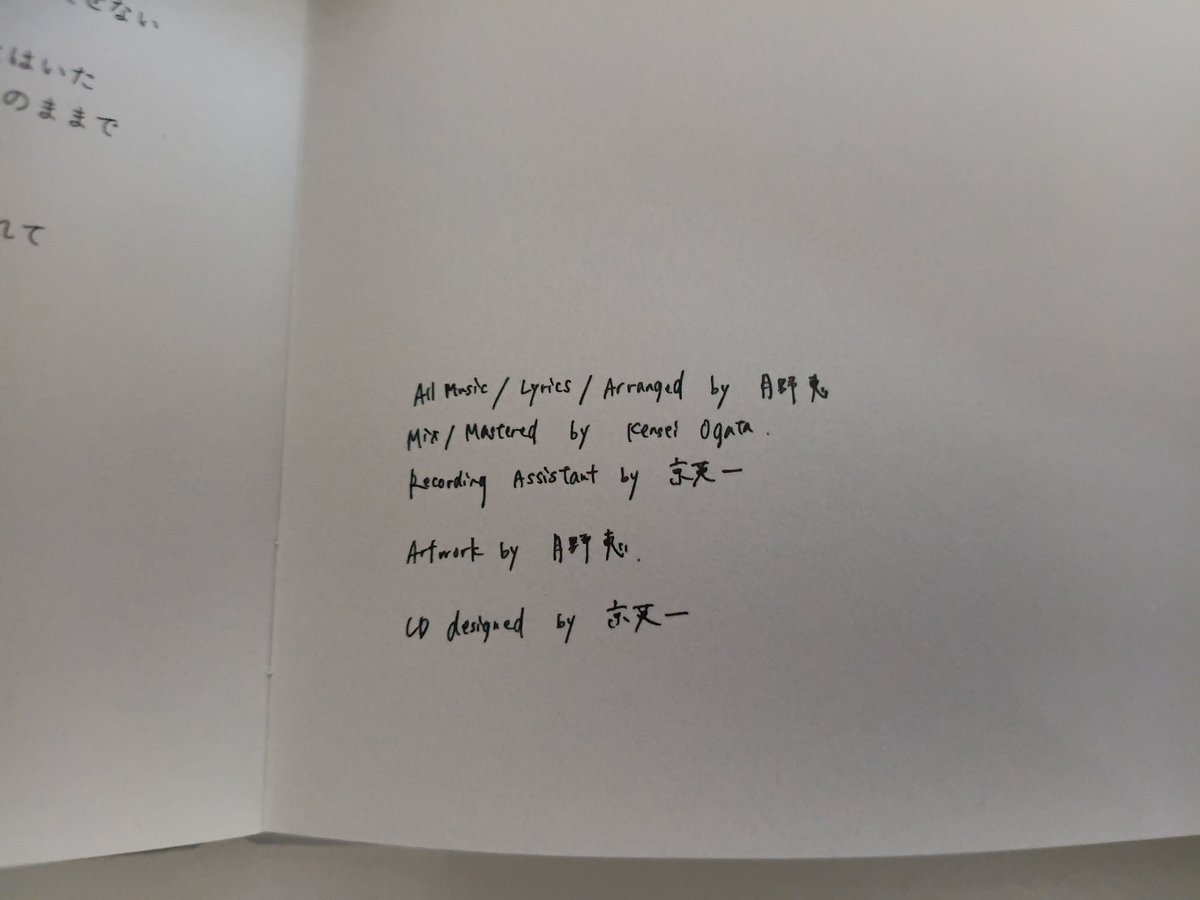 せない
はいた
のままで
れて
All Music / Lyrics / Arranged by 月野恵
Mix / Mastered by Kensei Ogata.
Recording Assistant by 京英一
Artwork by 月野恵.
CD designed by 京英一